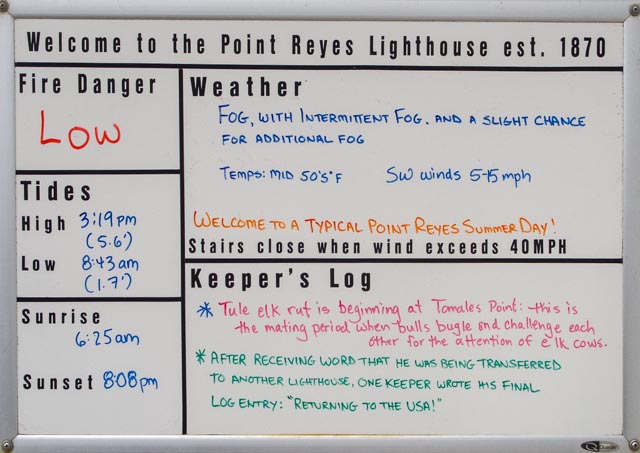 Welcome to the Point Reyes Lighthouse est. 1870
Fire Danger
Low
Tides
High 3:19pm
(5.6')
Low 8:43am
(1.7')
Sunrise
6:25am
Sunset 8:08pm
Weather
FOG, WITH INTERMITTENT FOG. AND A SLIGHT CHANCE
FOR ADDITIONAL FOG
TEMPS: MID 50'S°F SW winds 5-15 mph
WELCOME TO A TYPICAL POINT REYES SUMMER DAY!
Stairs close when wind exceeds 40MPH
Keeper's Log
* Tule elk rut is beginning at Tomales Point: this is
the mating period when bulls bugle and challenge each
other for the attention of elk cows.
* AFTER RECEIVING WORD THAT HE WAS BEING TRANSFERRED
TO ANOTHER LIGHTHOUSE, ONE KEEPER WROTE HIS FINAL
LOG ENTRY: "RETURNING TO THE USA!"